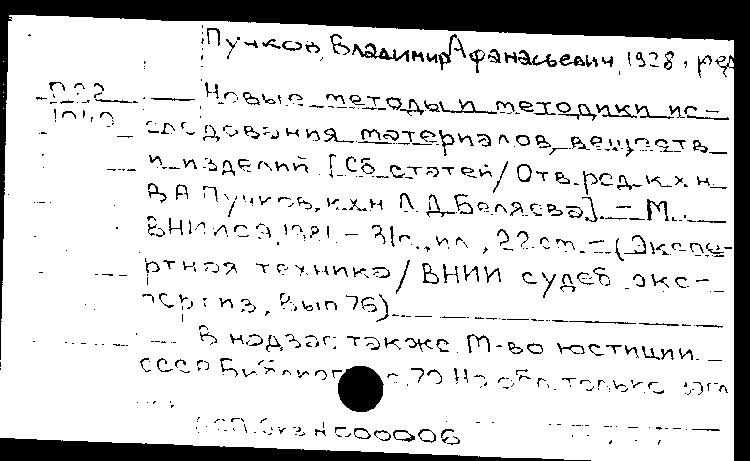 Пучков, Владимир Афанасьевич, 1928, ред
Новые методы и методики ис-
следования материалов, веществ
и изделий [Сб статей/Отв. ред. к.х.н
В А Пучков, к.х.н Л Д Беляева]. – М.:
ВНИИСЭ, 1981. –
ил, 22 см. – (Экспе-
ртная техника/ВНИИ судеб экс-
пертиз, Вып 76)
В надзаг. также М-во юстиции
СССР
На обл. только загл